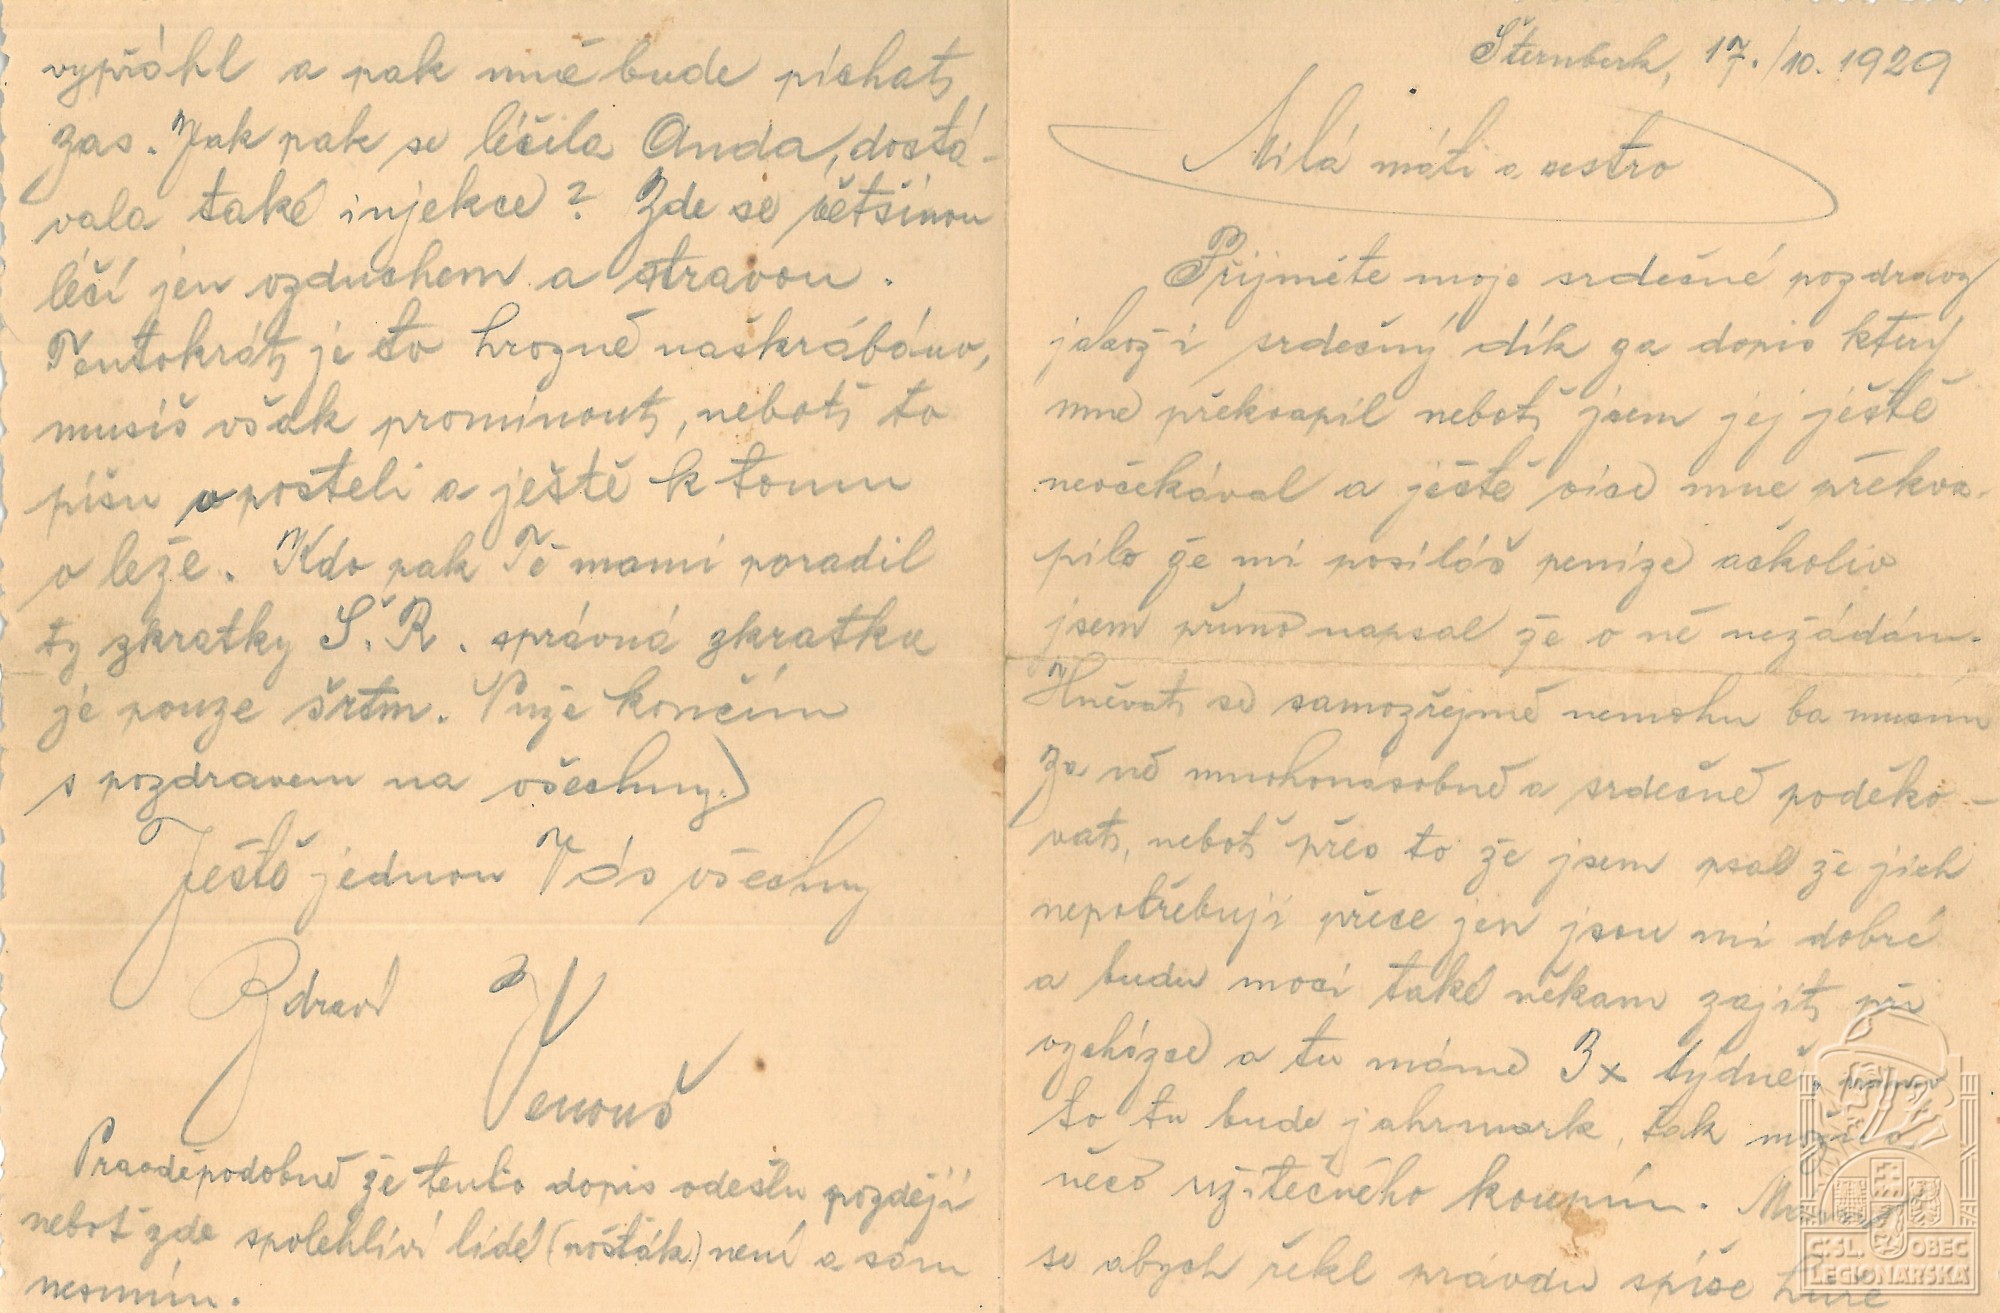 Šternberk, 17./10. 1929
Milá máti a sestro
Přijměte moje srdečné pozdravy
jakož i srdečný dík za dopis který
mne překvapil neboť jsem jej ještě
neočekával a ještě více mne překva-
pilo že mi posíláš peníze ačkoliv
jsem přímo napsal že o ně nežádám.
Hněvat se samozřejmě nemohu ba musím
za ně mnohonásobně a srdečně poděko-
vat, neboť přes to že jsem psal že jich
nepotřebuji přece jen jsou mi dobré
a budu moci také někam zajít při
vycházce a tu máme 3x týdně,
to tu bude jahrmark, tak
něco užitečného koupím.
se abych řekl pravdu spíše hůře
vypřáhl a pak mně bude píchat
zas. Jak pak se léčila Anda, dostá-
vala také injekce? Zde se většinou
léčí jen vzduchem a stravou.
Tentokrát je to hrozně naškrábáno,
musíš však prominout, neboť to
píšu v posteli a ještě k tomu
v leže. Kdo pak Tě mami poradil
ty zkratky Š.R. správná zkratka
je pouze šrtm. Nuže končím
s pozdravem na všechny.)
Ještě jednou Vás všechny
Zdraví
Venouš
Pravděpodobně že tento dopis odešlu později
neboť zde spolehliví lidé (pošťák) není a sám
nesmím.
ČSL. OBEC
LEGIONÁŘSKÁ